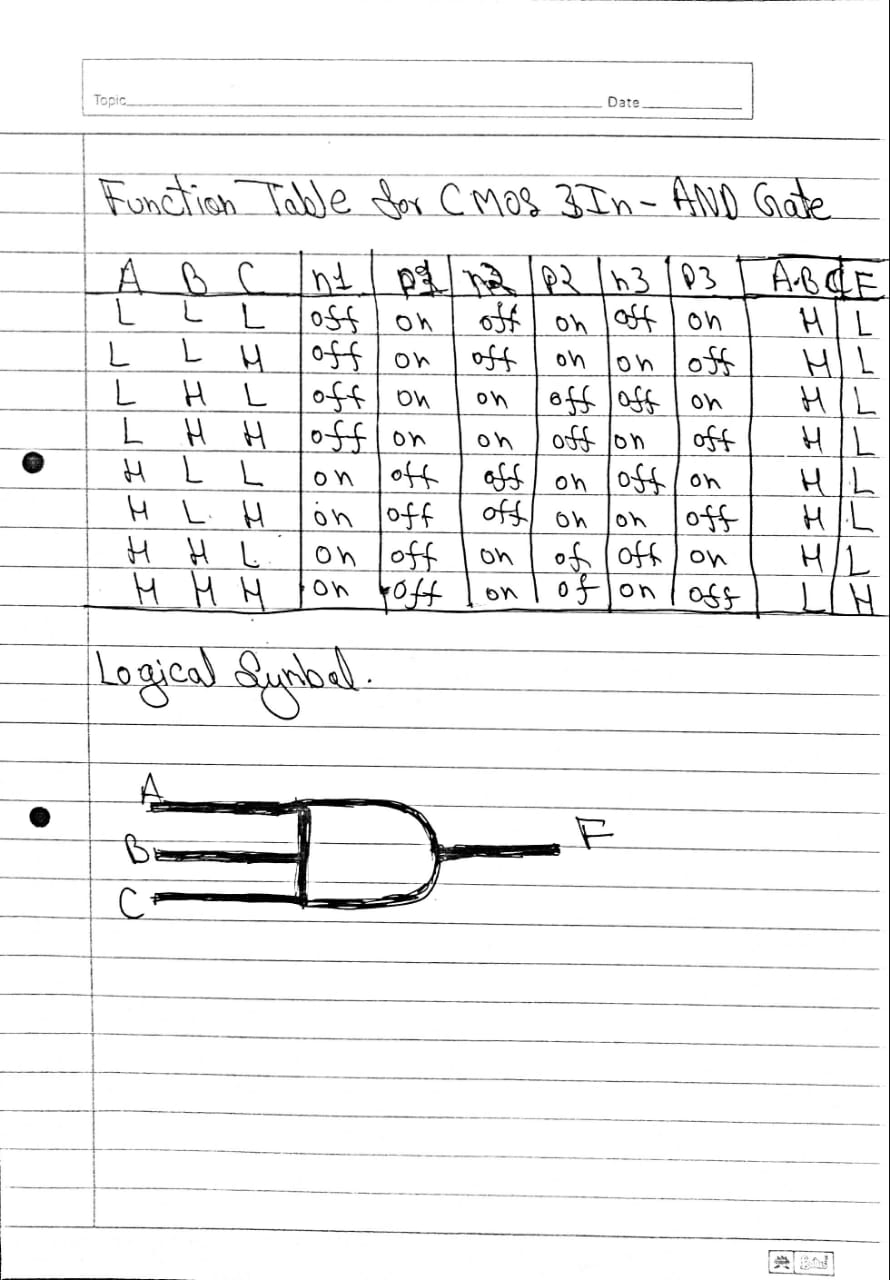 Topic Date
Function Table for CMOS 3In-AND Gate
A B C n1 p1 n2 p2 n3 p3 A.B.C F
L L L off on off on off on H L
L L H off on off on on off H L
L H L off on on off off on H L
L H H off on on off on off H L
H L L on off off on off on H L
H L H on off off on on off H L
H H L on off on of off on H L
H H H on off on of on off L H
Logical Synbol.
A
B
C
F